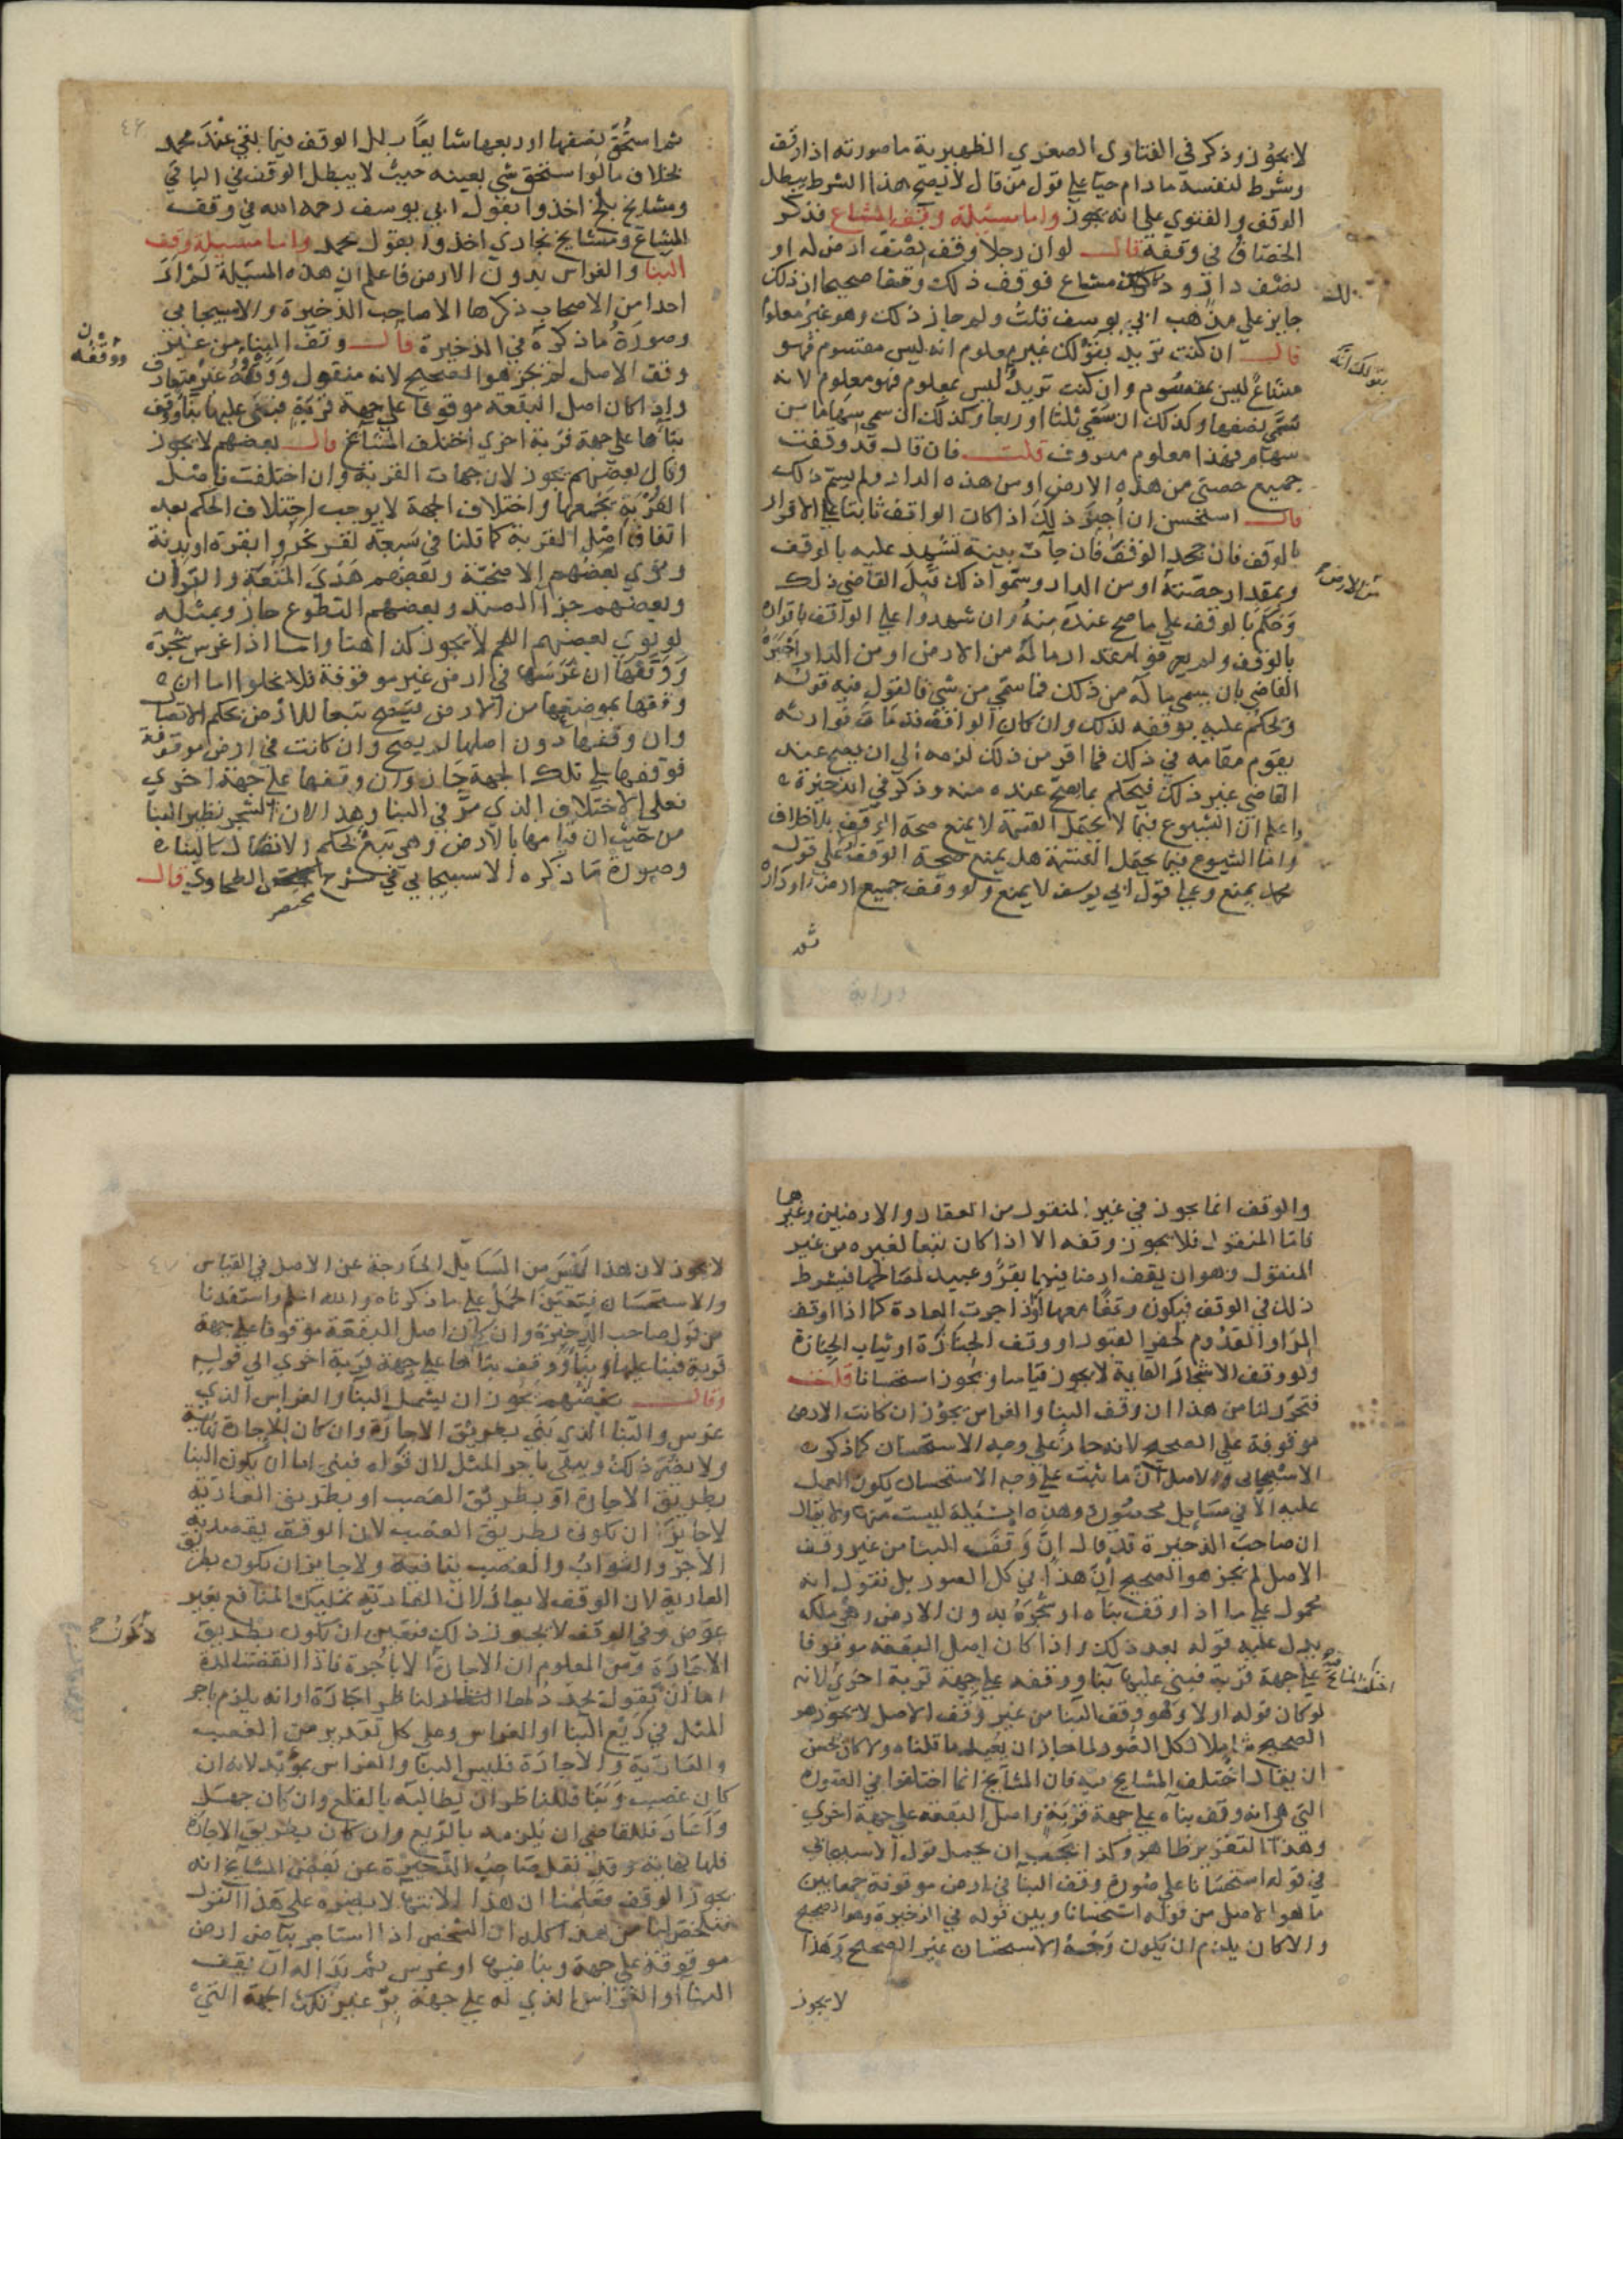 لا يجوز وذكر في الفتاوى الصغرى الظهيرية ما صورته اذا وقف
وشرط لنفسه ما دام حيا على قول من قال لا يصح هذا الشرط يبطل
الوقف والفتوى على انه يجوز واما مسئلة وقف المشاع فذكر
الخصاف في وقفه قال لو ان رجلا وقف نصف ارض له او
نصف دار وذلك مشاع فوقف ذلك وقفا صحيحا ان ذلك
جايز على مذهب ابي يوسف قلت ولم جاز ذلك وهو غير معلوم
قال ان كنت تريد بقولك غير معلوم انه ليس مقسوم فهو
مشاع ليس بمقسوم وان كنت تريد ليس بمعلوم فهو معلوم لانه
سمى نصفها وكذلك ان سمى ثلثا او ربعا وكذلك ان سمى سهاما من
سهام فهذا معلوم معروف قلت فان قال قد وقفت
جميع حصتي من هذه الارض او من هذه الدار ولم يسم ذلك
قال استحسن ان اجيز ذلك اذا كان الواقف ثابتا على الاقرار
بالوقف فان جحد الوقف فان جآت بينة تشهد عليه بالوقف
وبمقدار حصته او من الدار وسموا ذلك قبل القاضي ذلك
وحكم بالوقف على ما صح عنده منه وان شهدوا على الواقف باقراره
بالوقف ولم يعرفوا مقدار ماله من الارض او من الدار اخبره
القاضي بان يسمى ماله من ذلك فما سمى من شي فالقول فيه قوله
ويحكم عليه بوقفه لذلك وان كان الواقف قد مات فوارثه
يقوم مقامه في ذلك فما اقر من ذلك لزمه الى ان يصح عند
القاضي غير ذلك فيحكم بما يصح عنده منه وذكر في الذخيرة
واعلم ان الشيوع فيما لا يحتمل القسمة لا يمنع صحة الوقف بلا خلاف
واما الشيوع فيما يحتمل القسمة هل يمنع صحة الوقف على قول
محمد يمنع وعلى قول ابي يوسف لا يمنع ولو وقف جميع ارضه او داره
ثم
بقولك انه
من الارض
ثم استحق نصفها او ربعها شايعا بطل الوقف فيما بقي عند محمد
بخلاف ما لو استحق شي بعينه حيث لا يبطل الوقف في الباقي
ومشايخ بلخ اخذوا بقول ابي يوسف رحمه الله في وقف
المشاع ومشايخ بخارى اخذوا بقول محمد واما مسئلة وقف
البنا والغراس بدون الارض فاعلم ان هذه المسئلة لم ار
احدا من الاصحاب ذكرها الا صاحب الذخيرة والاسبيجابي
وصورة ما ذكره في الذخيرة قال وقف البنا من غير
وقف الاصل لم يجز هو الصحيح لانه منقول ووقفه غير متعارف
واذا كان اصل البقعة موقوفا على جهة قربة فبنى عليها بنا ووقف
بناها على جهة قربة اخرى اختلف المشايخ قال بعضهم لا يجوز
وقال بعضهم يجوز لان جهات القربة وان اختلفت فاصل
القربة يجمعها واختلاف الجهة لا يوجب اختلاف الحكم بعد
اتفاق اصل القربة كما قلنا في سبعة نفر نحروا بقرة او بدنة
ونوى بعضهم الاضحية وبعضهم هدي المتعة والقران
وبعضهم جزا الصيد وبعضهم التطوع جاز وبمثله
لو نوى بعضهم اللحم لا يجوز كذا هنا واما اذا غرس شجرة
ووقفها ان غرسها في ارض غير موقوفة فلا يخلوا اما ان
وقفها بموضعها من الارض فيصح تبعا للارض بحكم الاتصال
وان وقفها دون اصلها لم يصح وان كانت في ارض موقوفة
فوقفها على تلك الجهة جاز وان وقفها على جهة اخرى
فعلى الاختلاف الذي مر في البنا وهذا لان الشجر نظير البنا
من حيث ان قيامها بالارض وهي تبع بحكم الاتصال كالبنا
وصورة ما ذكره الاسبيجابي في شرح الطحاوي قال
مختصر
٤٦
والوقف انما يجوز في غير المنقول من العقار والارضين وغيرها
فاما المنقول فلا يجوز وقفه الا اذا كان تبعا لغيره من غير
المنقول وهو ان يقف ارضا فيها بقر وعبيد لمصالحها فيشرط
ذلك في الوقف فيكون وقفا معها او اذا جرت العادة كما اذا وقف
المر او القدوم لحفر القبور او وقف الجنازة او ثياب الجنازة
ولو وقف الاشجار القايمة لا يجوز قياسا ويجوز استحسانا قلت
فتحرر لنا من هذا ان وقف البنا والغراس يجوز ان كانت الارض
موقوفة على الصحيح لانه جاز على وجه الاستحسان كما ذكره
الاسبيجابي والاصل ان ما ثبت على وجه الاستحسان يكون العمل
عليه الا في مسايل محصورة وهذه المسئلة ليست منها ولا يقال
ان صاحب الذخيرة قد قال ان وقف البنا من غير وقف
الاصل لم يجز هو الصحيح ان هذا في كل الصور بل نقول انه
محمول على ما اذا وقف بناه او شجره بدون الارض وهي ملكه
يدل عليه قوله بعد ذلك واذا كان اصل البقعة موقوفا
على جهة قربة فبنى عليها بنا ووقفه على جهة قربة اخرى لانه
لو كان قوله اولا وهو وقف البنا من غير وقف الاصل لا يجوز هو
الصحيح شاملا لكل الصور لما جاز ان يعيد ما قلناه ولا كان يحسن
ان يقال اختلف المشايخ فيه فان المشايخ انما اختلفوا في الصورة
التي هي انه وقف بناه على جهة قربة واصل البقعة على جهة اخرى
وهذا التقرير ظاهر وكذا يجب ان يحمل قول الاسبيجابي
في قوله استحسانا على صورة وقف البنا في ارض موقوفة جمعا بين
ما هو الاصل من قوله استحسانا وبين قوله في الذخيرة وهو الصحيح
والا كان يلزم ان يكون وجه الاستحسان غير الصحيح وهذا
لا يجوز
اختلف المشايخ
لا يجوز لان هذا ليس من المسايل الخارجة عن الاصل في القياس
والاستحسان فيتعين الحمل على ما ذكرناه والله اعلم واستفدنا
من قول صاحب الذخيرة وان كان اصل البقعة موقوفا على جهة
قربة فبنا عليها بنا ووقف بناها على جهة قربة اخرى الى قوله
وقال بعضهم يجوز ان يشمل البنا والغراس الذي
غرس والبنا الذي بني بطريق الاجارة وان كان للاجارة نهاية
ولا يضر ذلك ويبقى باجر المثل لان قوله فبنى اما ان يكون البنا
بطريق الاجارة او بطريق الغصب او بطريق العارية
لا جايز ان يكون بطريق الغصب لان الوقف يقصد به
الاجر والثواب والغصب ينافيه ولا جايز ان يكون بطريق
العارية لان الوقف لا يعار لان العارية تمليك المنافع بغير
عوض وفي الوقف لا يجوز ذلك فتعين ان يكون بطريق
الاجارة ومن المعلوم ان الاجارة لا باجرة فاذا انقضت المدة
اما ان يقول يجدد لنا ظر اجارة او انه يلزم باجر
المثل في ريع البنا او الغراس وعلى كل تقدير من الغصب
والعارية والاجارة فليس البنا والغراس بمؤبد لانه ان
كان غصب وبنا فللناظر ان يطالبه بالقلع وان كان جهل
واعار فللقاضي ان يلزمه بالريع وان كان بطريق الاجارة
فلها نهاية وقد نقل صاحب الذخيرة عن بعض المشايخ انه
يجوز الوقف فعلمنا ان هذا الانتها لا يضره على هذا القول
فتلخص لنا من هذا كله ان الشخص اذا استاجر بياض ارض
موقوفة على جهة وبنا فيها او غرس ثم بدا له ان يقف
البنا او الغراس الذي له على جهة بر غير تلك الجهة التي
لا يكون
٤٧